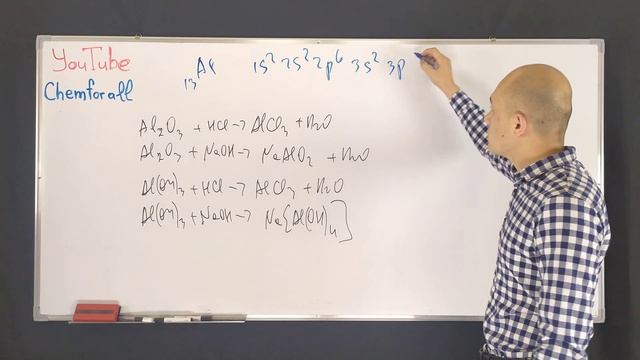 YouTube
Chemforall
₁₃Al 1s² 2s² 2p⁶ 3s² 3p
Al₂O₃ + HCl → AlCl₃ + H₂O
Al₂O₃ + NaOH → NaAlO₂ + H₂O
Al(OH)₃ + HCl → AlCl₃ + H₂O
Al(OH)₃ + NaOH → Na[Al(OH)₄]